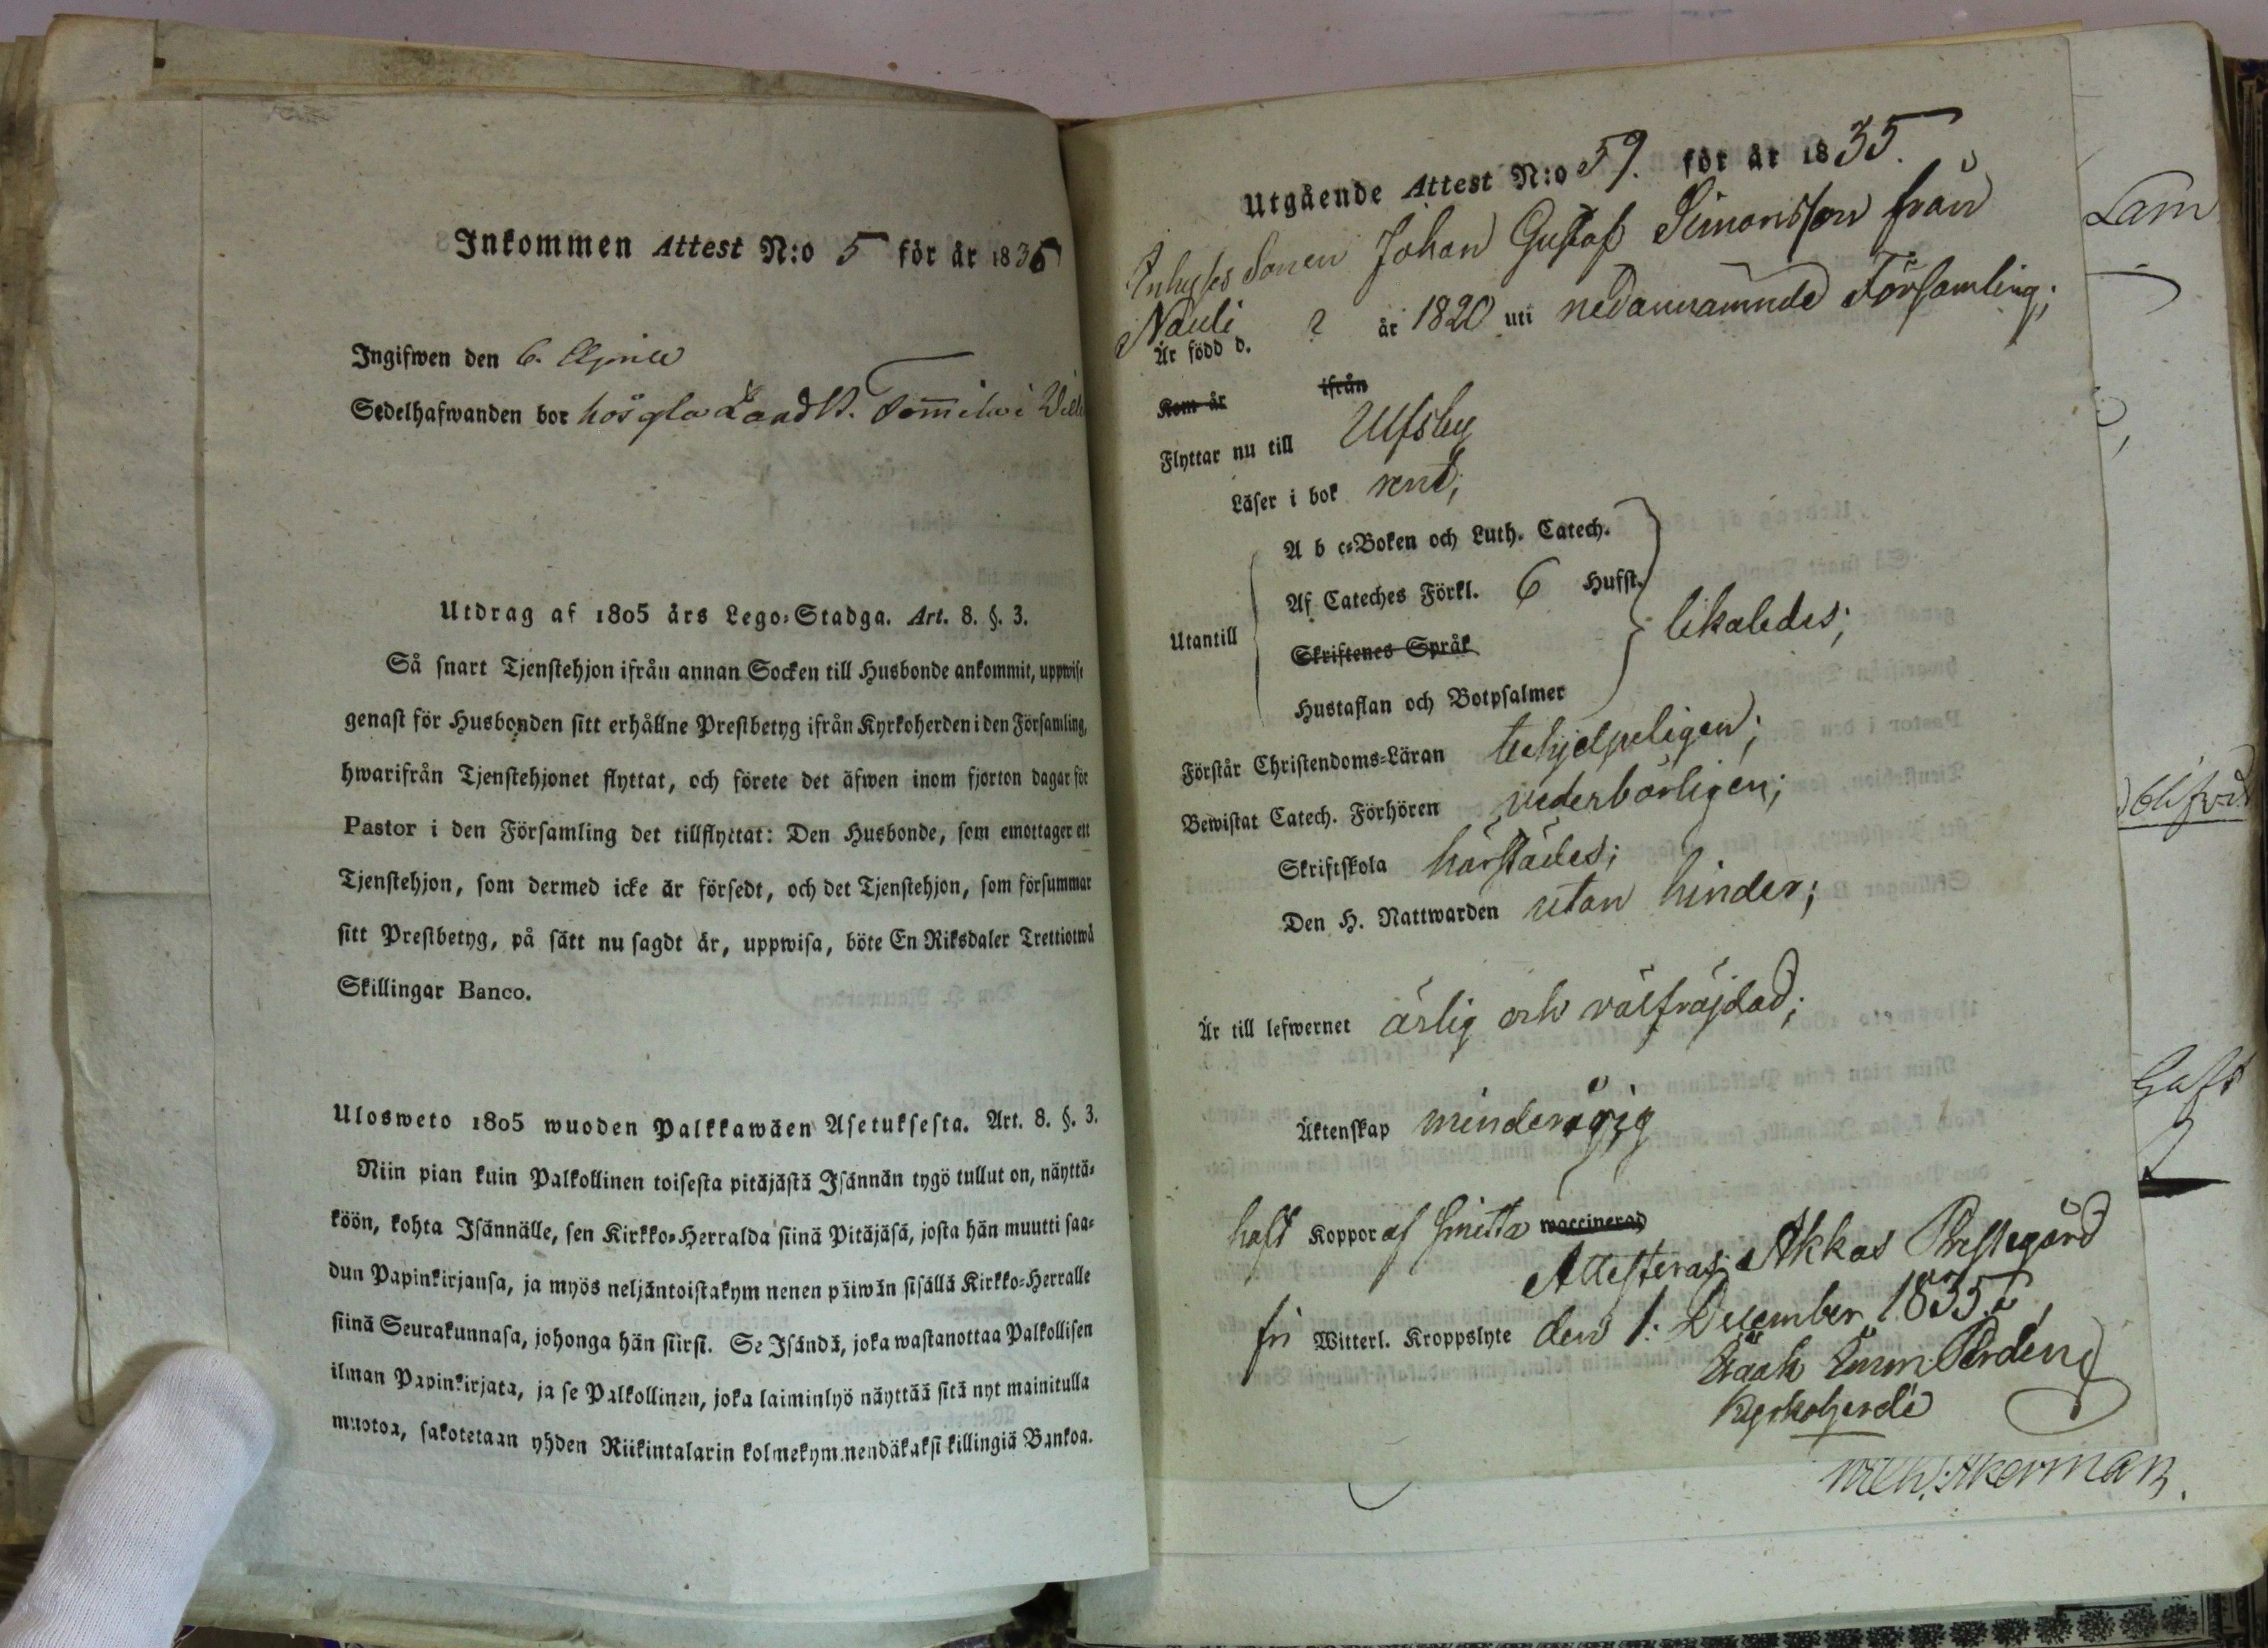 Inkommen Attest N:o 5 för år 1836
Ingifwen den 6. Aprill
Sedelhafwanden bor hos
Utdrag af 1805 års Lego-Stadga. Art. 8. §. 3.
Så snart Tjenstehjon ifrån annan Socken till Husbonde ankommit, uppwise
genast för Husbonden sitt erhållne Prestbetyg ifrån Kyrkoherden i den Församling,
hwarifrån Tjenstehjonet flyttat, och förete det äfwen inom fjorton dagar för
Pastor i den Församling det tillflyttat: Den Husbonde, som emottager ett
Tjenstehjon, som dermed icke är försedt, och det Tjenstehjon, som försummar
sitt Prestbetyg, på sätt nu sagdt är, uppwisa, böte En Riksdaler Trettiotwå
Skillingar Banco.
Ulosweto 1805 wuoden Palkkawäen Asetuksesta. Art. 8. §. 3.
Niin pian kuin Palkollinen toisesta pitäjästä Isännän tygö tullut on, näyttä-
köön, kohta Isännälle, sen Kirkko-Herralda siinä Pitäjäsä, josta hän muutti saa-
dun Papinkirjansa, ja myös neljäntoistakym nenen päiwän sisällä Kirkko-Herralle
siinä Seurakunnasa, johonga hän siirsi. Se Isändä, joka wastanottaa Palkollisen
ilman Papinkirjata, ja se Palkollinen, joka laiminlyö näyttää sitä nyt mainitulla
muotoa, sakotetaan yhden Riikintalarin kolmekymmenäkaksi killingiä Bankoa.
Utgående Attest N:o 59. för år 1835.
Inhyses Sonen Johan Gustaf Simonsson från
Nauli
Är född d. ? år 1820 uti nedannämnde Församling;
Kom år ifrån
Flyttar nu till Ulfsby
Läser i bok rent;
A b c-Boken och Luth. Catech.
Af Cateches Förkl. 6 Hufst.
Utantill likaledes;
Skriftenes Språk
Hustaflan och Botpsalmer
Förstår Christendoms-Läran behjelpeligen;
Bewistat Catech. Förhören vederbörligen;
Skriftskola härstädes;
Den H. Nattwarden utan hinder;
Är till lefwernet ärlig och välfräjdad;
Äktenskap minderårig
haft Koppor af smitta waccinerad
Attesteras; Akkas Prestegård
fri Witterl. Kroppslyte den 1. December 1835.
Isaak Emm. Perden
Kyrkoherde
Lam
Haft